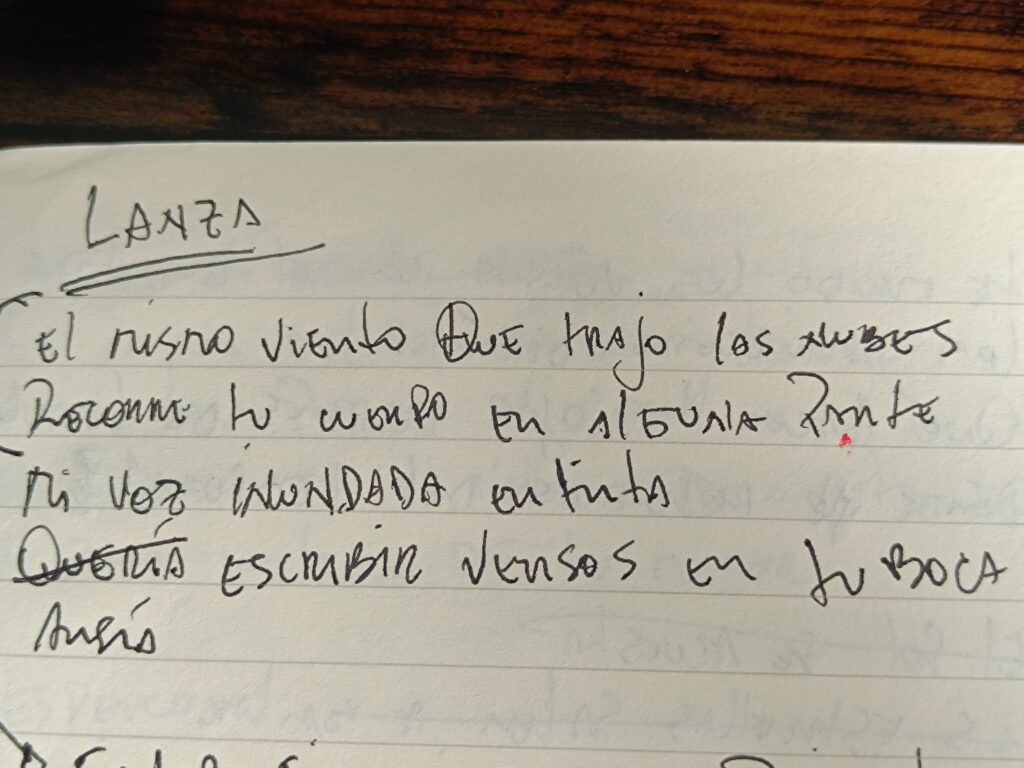 LANZA
El mismo viento Que trajo las nubes
Recorre tu cuerpo en alguna parte
Mi voz inundada en tinta
Quería escribir versos en tu BOCA
Ansía